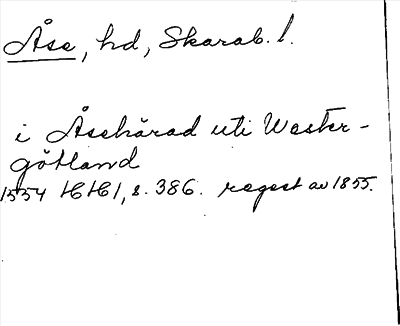 Åse, hd, Skarab. l.
i Åsehärad uti Wester-
götland
1554 HH1, s. 386. regest av 1855.